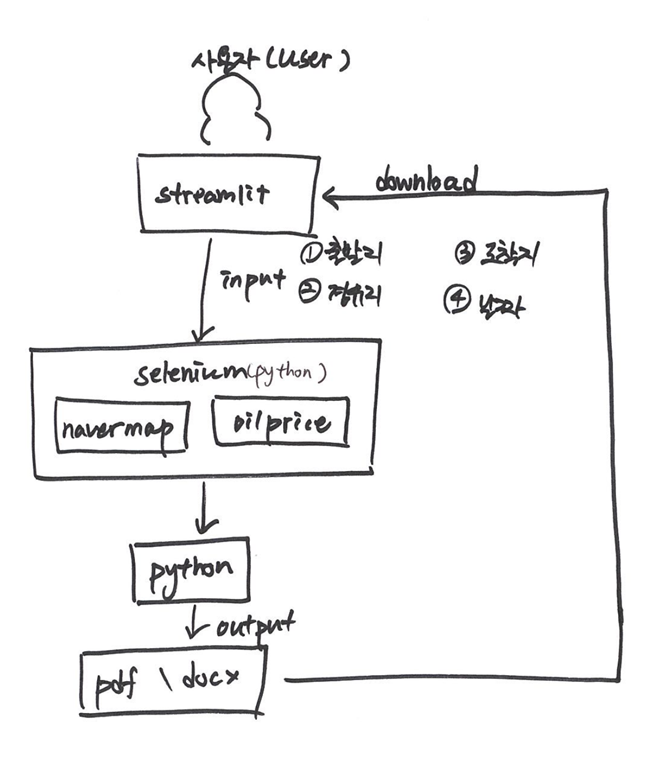 사용자(user)
streamlit
download
input
① 출발지
③ 도착지
② 경유지
④ 날짜
selenium(python)
navermap
oilprice
python
output
pdf \ docx